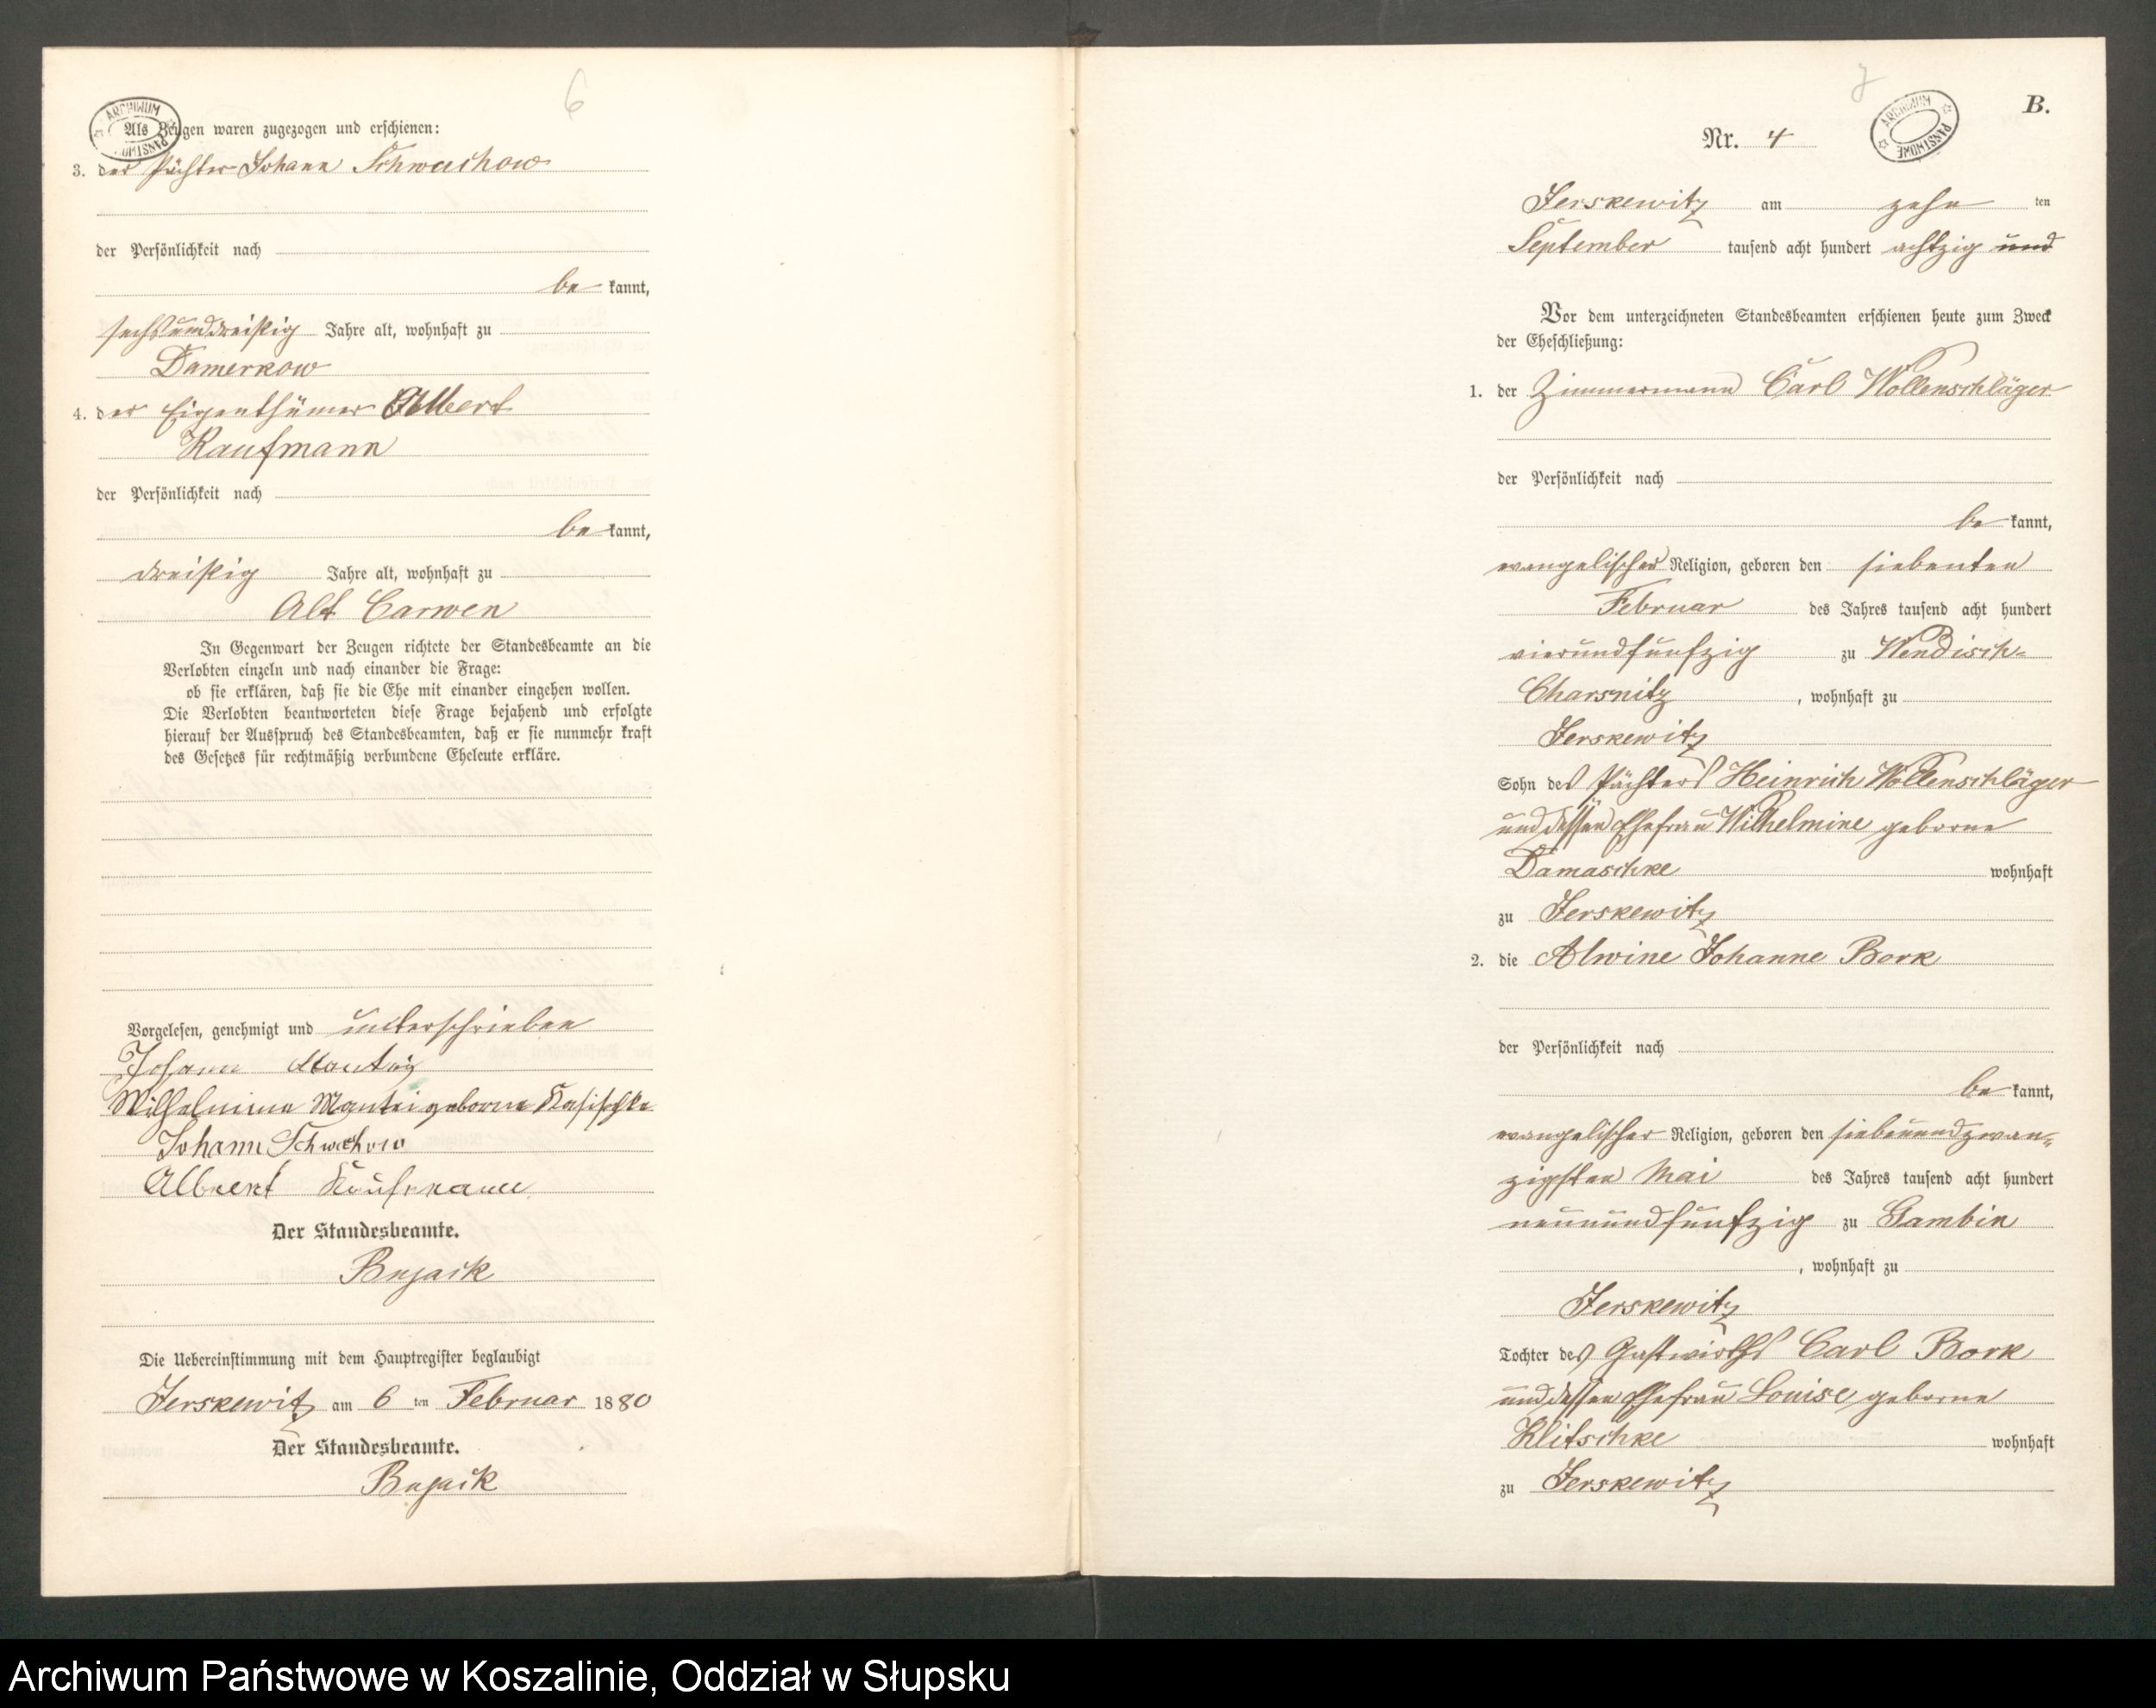 6
ARCHIWUM PAŃSTWOWE
Als Zeugen waren zugezogen und erschienen:
3. der Pächter Johann Schwuchow
der Persönlichkeit nach
be kannt,
sechsunddreißig Jahre alt, wohnhaft zu
Damerkow
4. der Eigenthümer Albert
Kaufmann
der Persönlichkeit nach
be kannt,
dreißig Jahre alt, wohnhaft zu
Alt Carwen
In Gegenwart der Zeugen richtete der Standesbeamte an die
Verlobten einzeln und nach einander die Frage:
ob sie erklären, daß sie die Ehe mit einander eingehen wollen.
Die Verlobten beantworteten diese Frage bejahend und erfolgte
hierauf der Ausspruch des Standesbeamten, daß er sie nunmehr kraft
des Gesetzes für rechtmäßig verbundene Eheleute erkläre.
Vorgelesen, genehmigt und unterschrieben
Johann Mantei
Wilhelmine Mantei geborne Kasischke
Johann Schwuchow
Albert Kaufmann
Der Standesbeamte.
Bujack
Die Uebereinstimmung mit dem Hauptregister beglaubigt
Jerskewitz am 6 ten Februar 1880
Der Standesbeamte.
Bujack
7
B.
Nr. 4
ARCHIWUM PAŃSTWOWE
Jerskewitz am zehn ten
September tausend acht hundert achtzig und
Vor dem unterzeichneten Standesbeamten erschienen heute zum Zweck
der Eheschließung:
1. der Zimmermann Carl Wollenschläger
der Persönlichkeit nach
be kannt,
evangelischer Religion, geboren den siebenten
Februar des Jahres tausend acht hundert
vierundfünfzig zu Wendisch-
Charsnitz, wohnhaft zu
Jerskewitz
Sohn des Pächters Heinrich Wollenschläger
und dessen Ehefrau Wilhelmine geborne
Damaschke wohnhaft
zu Jerskewitz
2. die Alwine Johanne Bork
der Persönlichkeit nach
be kannt,
evangelischer Religion, geboren den siebenundzwan-
zigsten Mai des Jahres tausend acht hundert
neunundfünfzig zu Gambin
, wohnhaft zu
Jerskewitz
Tochter des Gastwirths Carl Bork
und dessen Ehefrau Louise geborne
Klitschke wohnhaft
zu Jerskewitz
Archiwum Państwowe w Koszalinie, Oddział w Słupsku